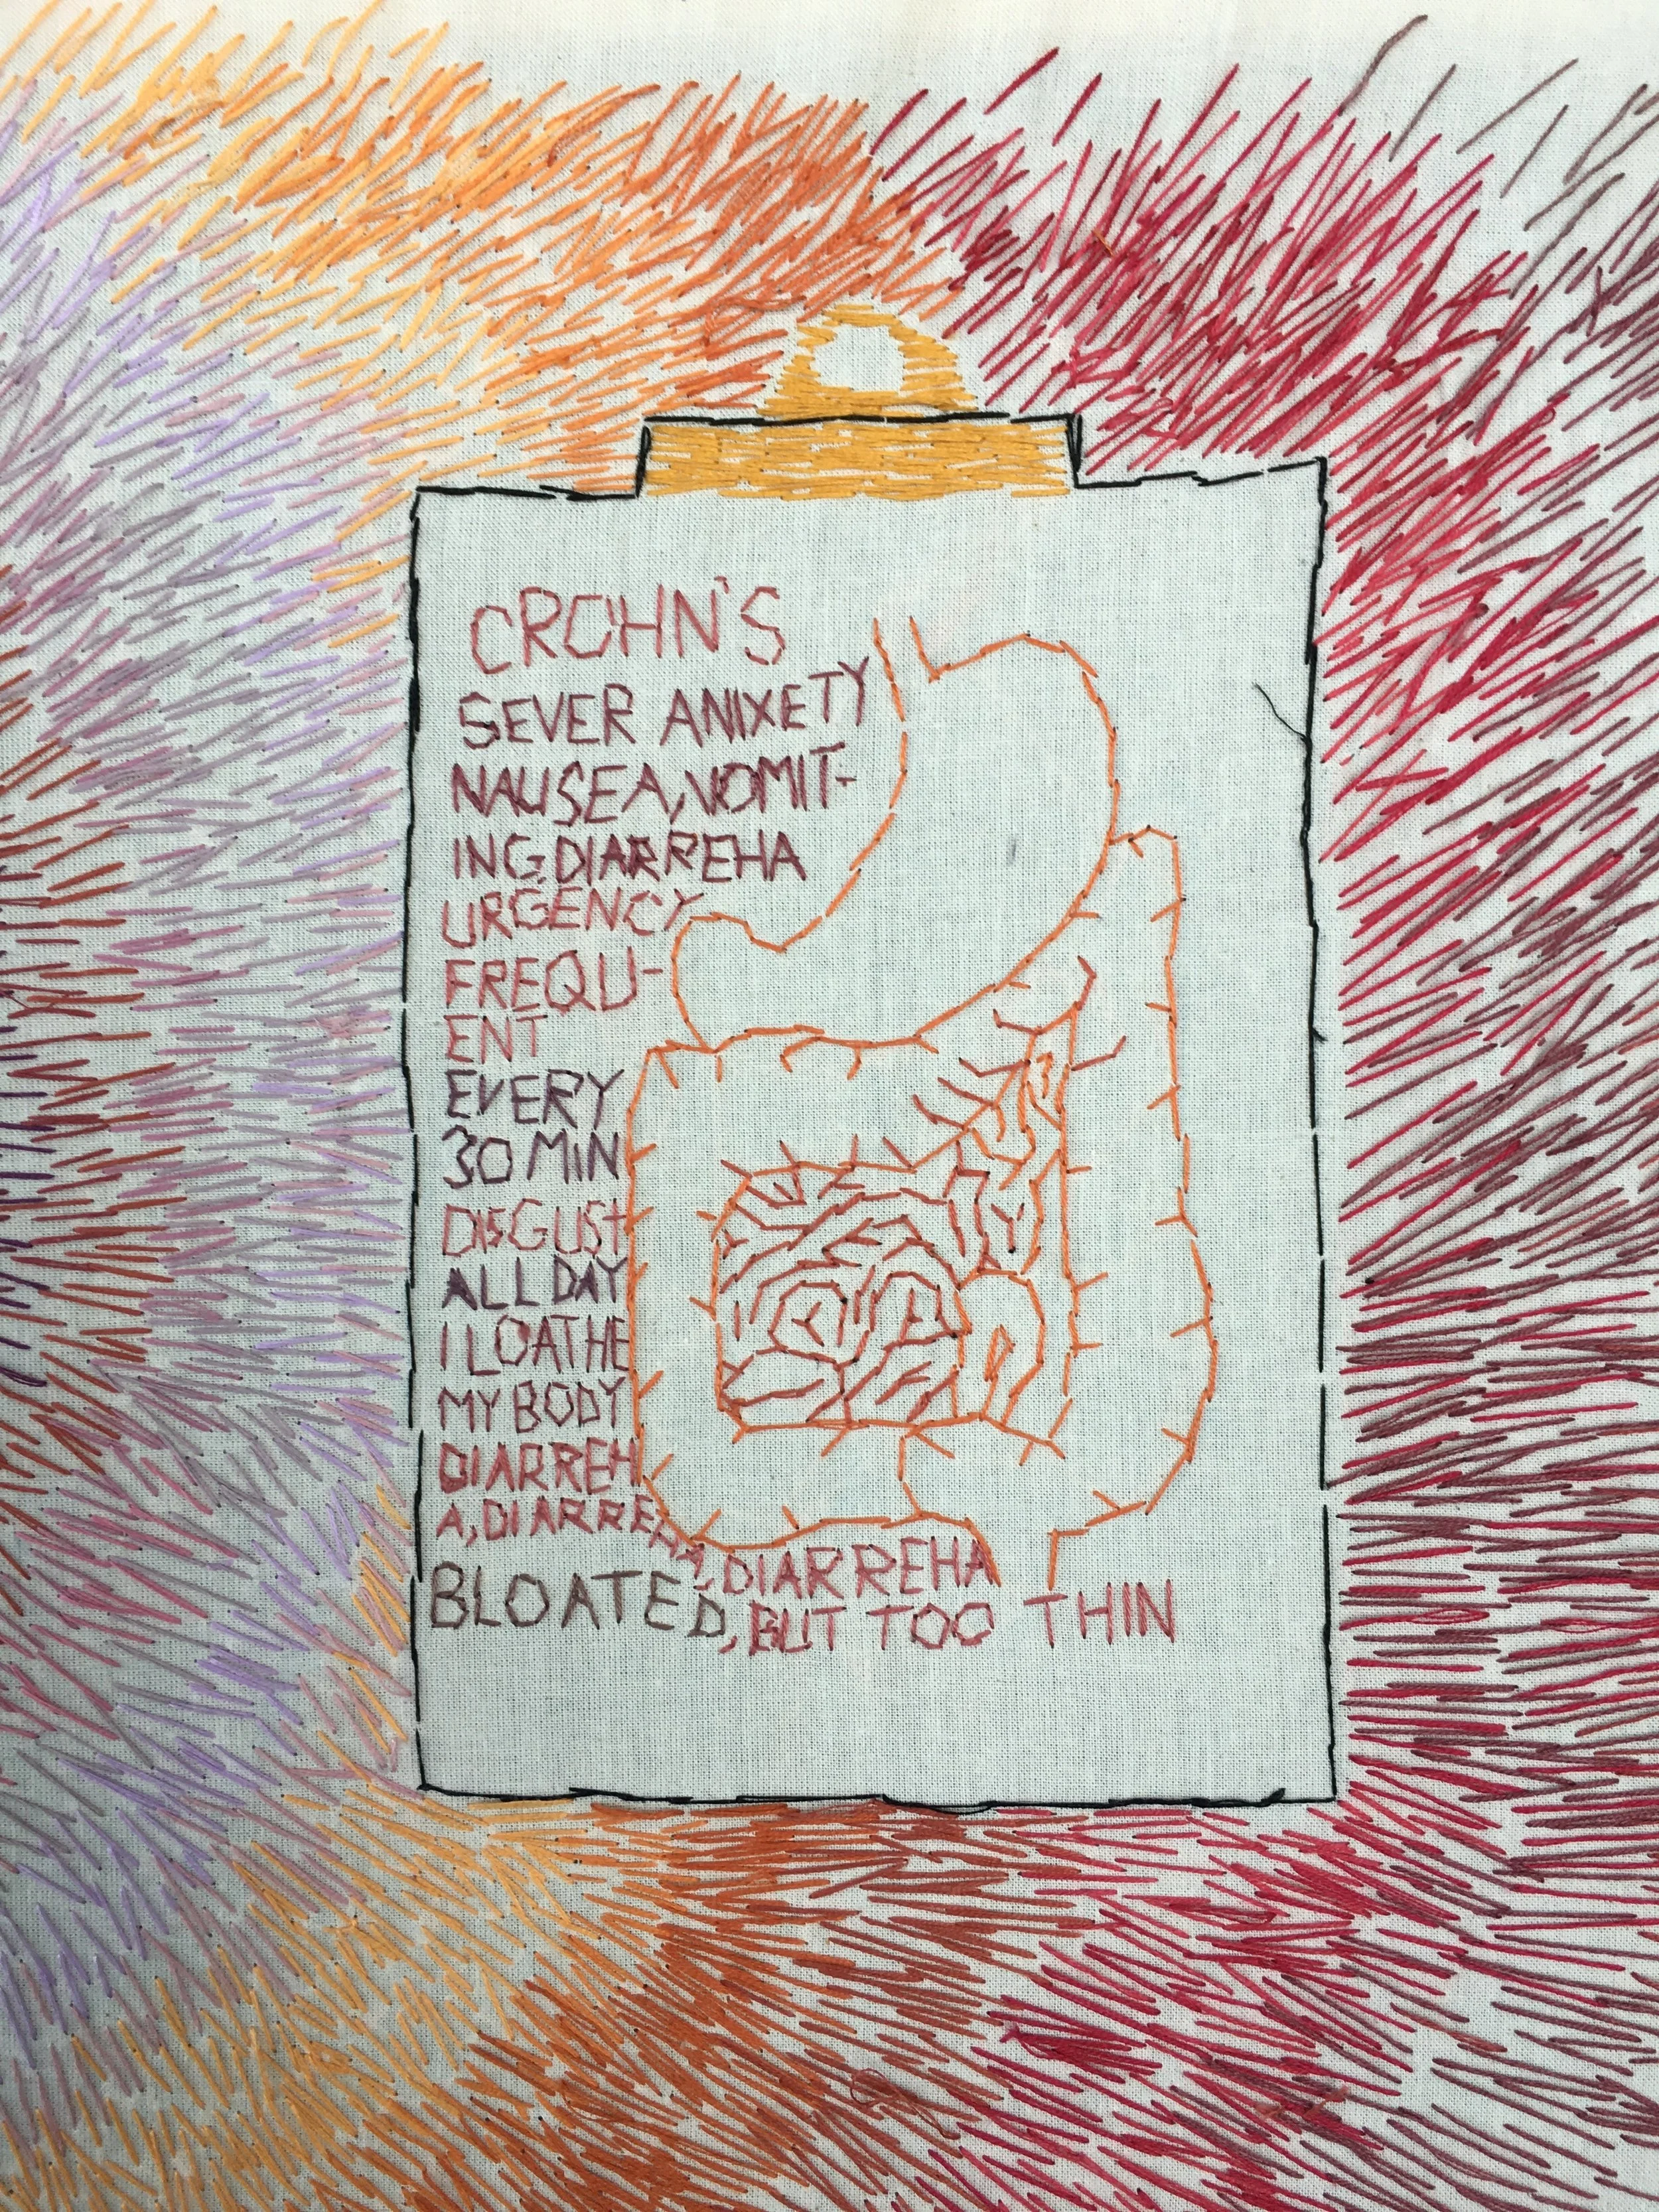 CROHN'S
SEVER ANIXETY
NAUSEA, VOMIT-
ING, DIARREHA
URGENCY
FREQU-
ENT
EVERY
30 MIN
DISGUST
ALL DAY
I LOATHE
MY BODY
DIARREH
A, DIARREHA, DIARREHA
BLOATED, BUT TOO THIN